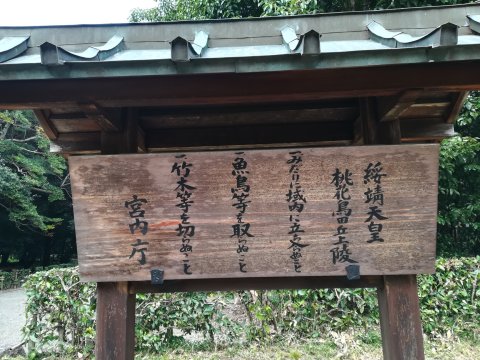 綏靖天皇
桃花鳥田丘上陵
一みだりに域内に立ち入らぬこと
一魚鳥等を取らぬこと
一竹木等を切らぬこと
宮内庁